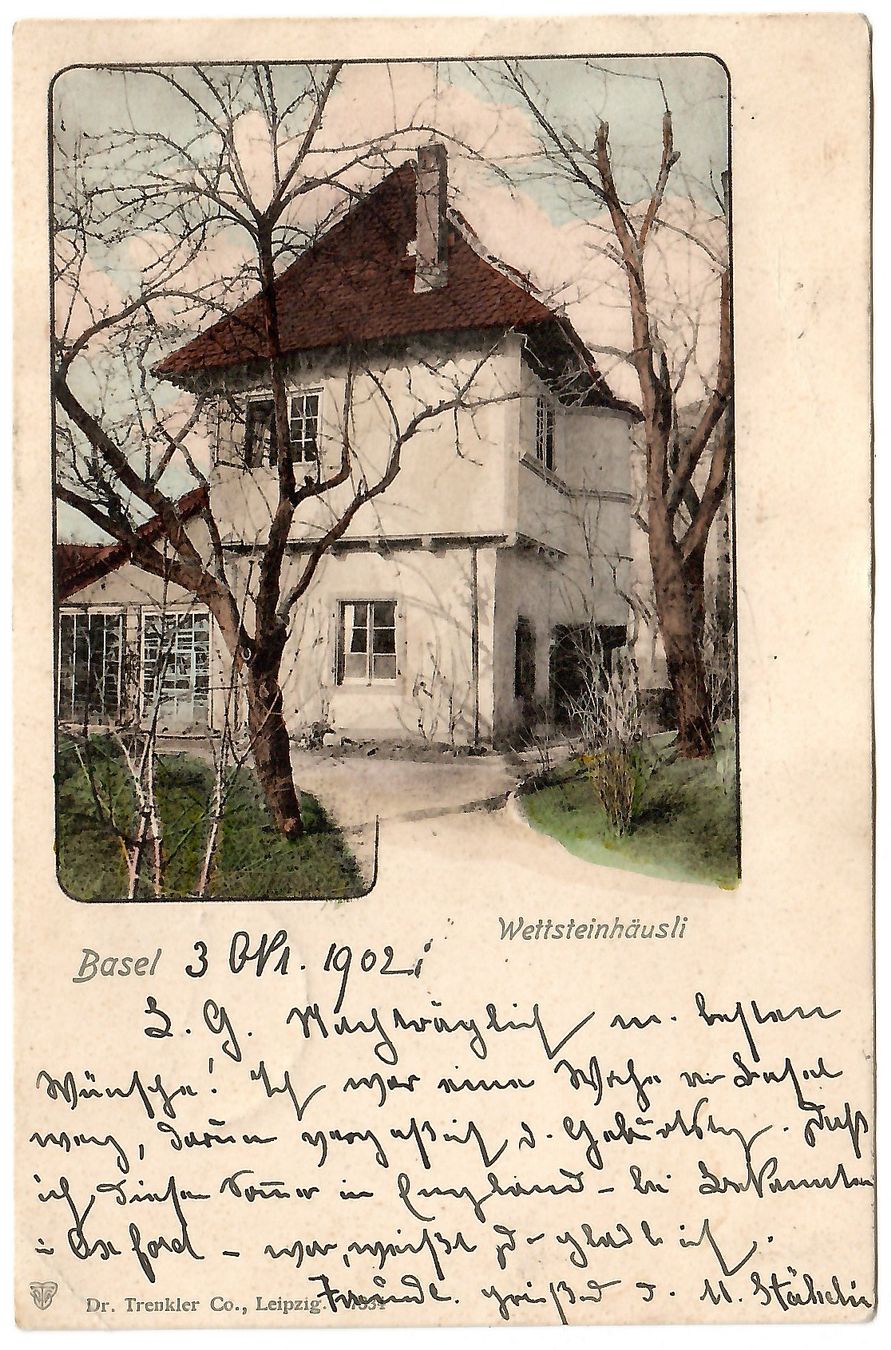 Wettsteinhäusli
Basel 3 Okt. 1902
L. G. Nachträglich m. besten
Wünsche! Ich war eine Woche v. Basel
weg, darum vergaß ich d. Geburtstg. Daß
ich diesen Sommer in England – bei Bekannten
i. Oxford – war, weißt Du glaub ich.
Freundl. grüßd D. M. Stähelin
Dr. Trenkler Co., Leipzig.